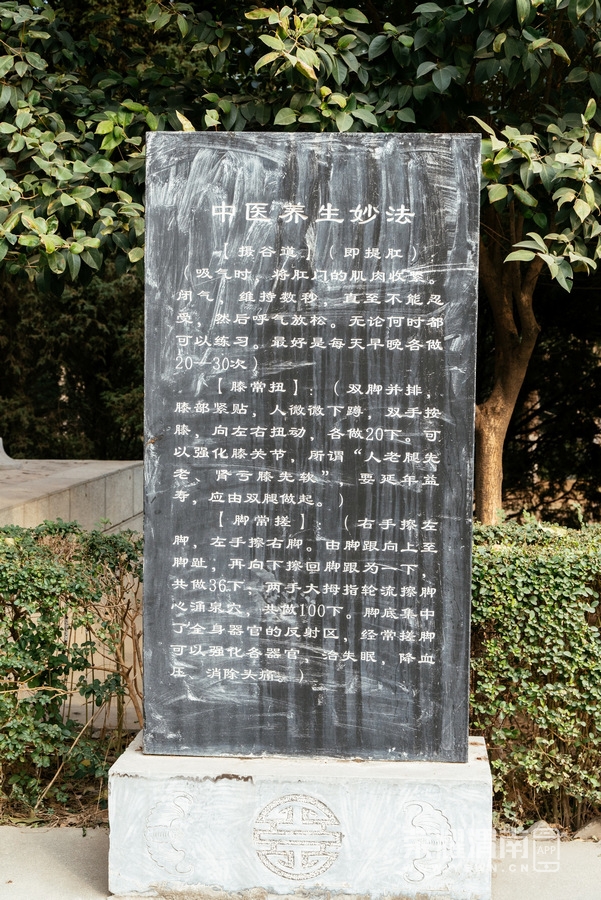 中医养生妙法
【摄谷道】（即提肛）：
（吸气时，将肛门的肌肉收紧。
闭气，维持数秒，直至不能忍
受，然后呼气放松。无论何时都
可以练习。最好是每天早晚各做
20—30次）
【膝常扭】：（双脚并排，
膝部紧贴，人微微下蹲，双手按
膝，向左右扭动，各做20下。可
以强化膝关节，所谓“人老腿先
老、肾亏膝先软”，要延年益
寿，应由双腿做起。）
【脚常搓】：（右手擦左
脚，左手擦右脚。由脚跟向上至
脚趾，再向下擦回脚跟为一下，
共做36下，两手大拇指轮流擦脚
心涌泉穴，共做100下。脚底集中
了全身器官的反射区，经常搓脚
可以强化各器官，治失眠，降血
压、消除头痛。）
APP